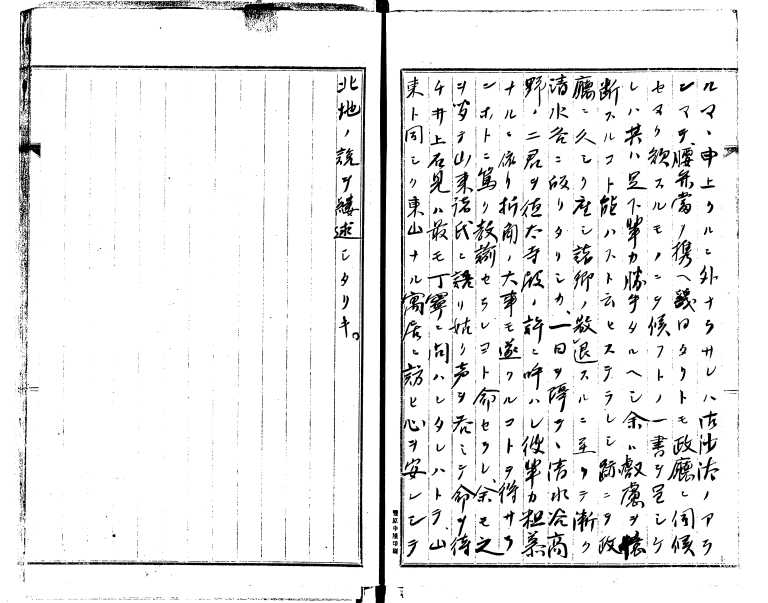 ルマヽ申上クルニ外ナラサレハ御沙汰ノアラ
ンマテ腰弁当ノ携ヘ幾日タリトモ政廳ニ伺候
セマク欲スルモノニテ候フトノ一書ヲ呈シケ
レハ其ハ足下輩カ勝手タルヘシ余ハ叡慮ヲ懐
断スルコト能ハスト云ヒステラレシ跡ニテ政
廳ニ久シク座シ諸卿ノ散退スルニ至リテ漸ク
清水谷ニ皈リタリシカ、一日ヲ隔テヽ清水谷高
野ノ二君ヲ徳大寺殿ノ許ニ呼ハレ彼輩カ担慕
ナルニ依リ折角ノ大事モ遂クルコトヲ得サラ
ンホトニ篤ク教諭セラレヨト命セラレ、余モ之
ヲ聞テ山東諸氏ニ語リ姑ク声ヲ呑ミテ命ヲ待
チ井上石見ハ最モ丁寧ニ問ハレタレハトテ、山
東ト同シク東山ナル寓居ニ訪ヒ心ヲ安レシテ
北地ノ説ヲ縷述シタリキ。